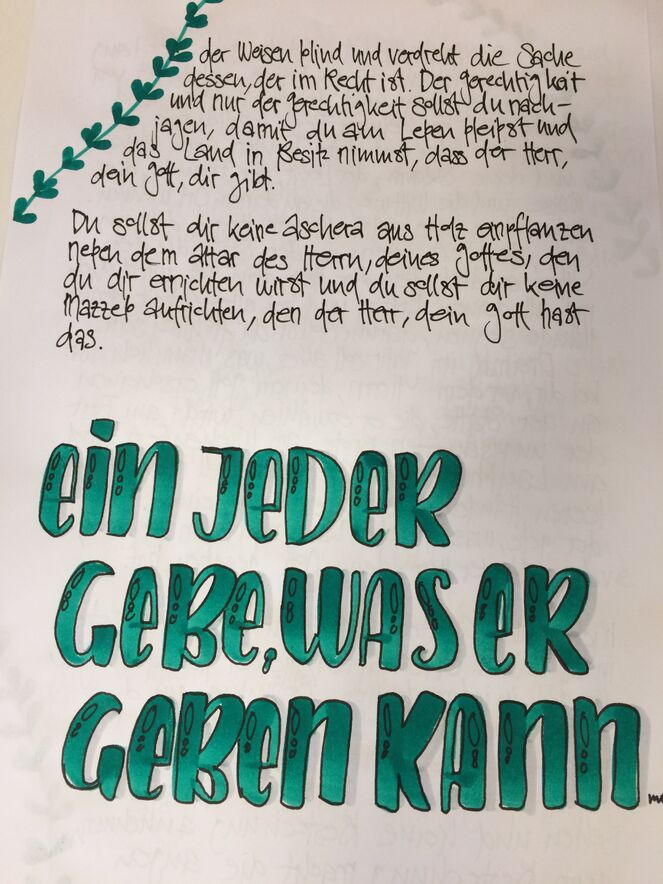 der Weisen blind und verdreht die Sache
dessen, der im Recht ist. Der Gerechtigkeit
und nur der Gerechtigkeit sollst du nach-
jagen, damit du am Leben bleibst und
das Land in Besitz nimmst, dass der Herr,
dein Gott, dir gibt.
Du sollst dir keine Aschera aus Holz einpflanzen
neben dem Altar des Herrn, deines Gottes, den
du dir errichten wirst und du sollst dir keine
Mazzeb aufrichten, den der Herr, dein Gott hast
das.
Ein jeder
gebe, was er
geben kann